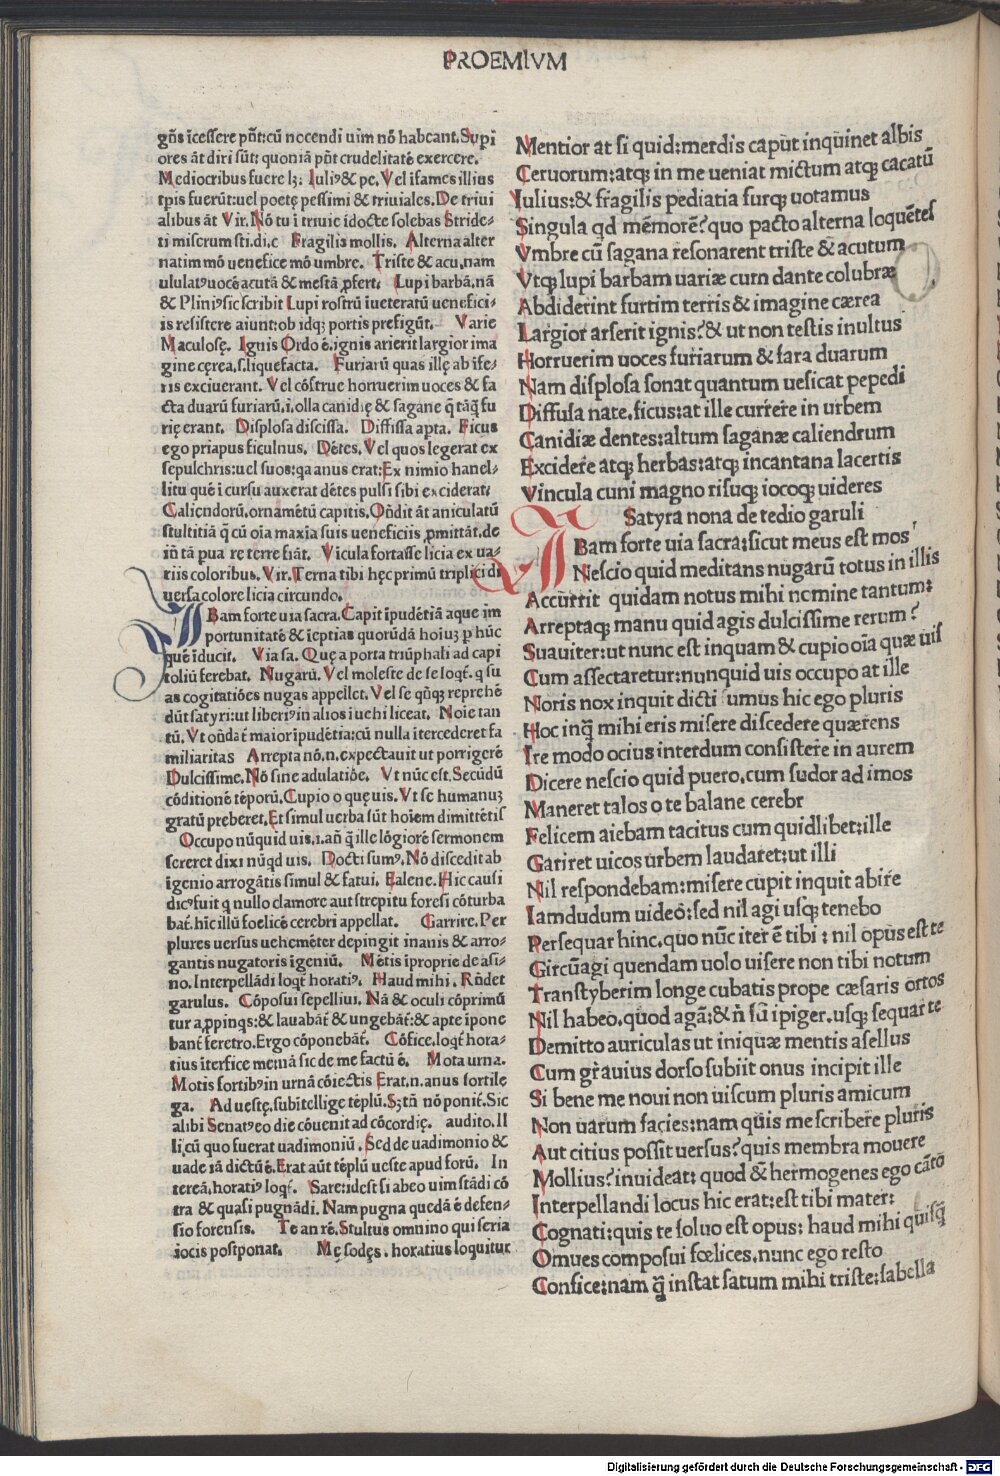 PROEMIVM
gn̄s īcessere pn̄t:cū nocendi uim nō habeant.Supi
ores āt diri sūt: quoniā pn̄t crudelitatē exercere.
Mediocribus fuere lꝫ. Iuliꝰ& pe. Vel īfames illius
tpis fuerūt:uel poetę pessimi & triuiales. De triui
alibus āt Vir. Nō tu ī triuiꝭ īdocte solebas Stride⸗
ti miserum sti.di.c Fragilis mollis. Alterna alter
natim mō uenefice mō umbre. Triste & acu.nam
ululatꝰuocē acutā & mestā ꝓfert. Lupi barbā.nā
& Pliniꝰsic scribit Lupi rostrū īueteratū ueneficí⸗
is resistere aiunt:ob idqꝫ portis prefigūt. Varie
Maculosę. Ignis Ordo ē.ignis arierit largior ima
gine cęrea.s.liquefacta. Furiarū quas illę ab īfe⸗
ris exciuerant. Vel cōstrue horruerim uoces & fa
cta duarū furiarū.i.olla canidię & sagane q̄ tāq̄ fu
rię erant. Displosa discissa. Diffissa apta. Ficus
ego priapus ficulnus. Dētes. Vel quos legerat ex
sepulchris:uel suos:qa anus erat:Ex nimio hanel⸗
litu quē ī cursu auxerat dētes pulsi sibi exciderat.
Caliendorū.ornamētū capitis. On̄dit āt aniculatū
stultitiā q̄ cū oīa maxīa suis ueneficiis ꝓmittāt.de
in̄ tā pua re terre fiāt. Vīcula fortasse licia ex ua⸗
riis coloribus. Vir. Terna tibi hęc primū triplici di
uersa colore licia circundo.
IBam forte uia sacra. Capit īpudētiā aque im
portunitatē & īeptias quorūdā hoīuꝫ ꝑ hūc
quē īducit. Via sa. Quę a porta triūphali ad capi
toliū ferebat. Nugarū. Vel moleste de se loqt̄. q su
as cogitatiōes nugas appellet. Vel se qn̄qꝫ reprehē
dūt satyri:ut liberiꝰin alios īuehi liceat. Noīe tan
tū. Vt on̄dat̄ maior īpudētia:cū nulla ītercederet fa
miliaritas Arrepta nō.n.expectauit ut porrigerē
Dulcissime. Nō sine adulatiōe. Vt nūc est. Secūdū
cōditionē tēporū. Cupio o quę uis. Vt se humanuꝫ
gratū preberet. Et simul uerba sūt hoīem dimittētis
Occupo nūquid uis.i.an̄ q̄ ille lōgiorē sermonem
sereret dixi nūqd uis. Docti sumꝰ. Nō discedit ab
īgenio arrogātis simul & fatui. Balene. Hic causi
dicꝰfuit q nullo clamore aut strepitu forēsi cōturba
bat̄. hīc illū foelicē cerebri appellat. Garrire. Per
plures uersus uehemēter depingit inanis & arro⸗
gantis nugatoris īgeniū. Mētis īproprie de asi⸗
no. Interpellādi loqt̄ horatiꝰ. Haud mihi. Rn̄det
garulus. Cōposui sepelliui. Nā & oculi cōprimū
tur a ꝓpinqs:& lauabāt̄ & ungebāt̄:& apte īpone
bant̄ feretro. Ergo cōponebāt̄. Cōfice.loqt̄ hora⸗
tius īterfice me:nā sic de me factū ē. Mota urna.
Motis fortibꝰin urnā cōiectis Erat.n.anus sortile
ga. Ad uestę.subītellige tēplū. Sꝫ tn̄ nō ponit̄. Sic
alibi Senatꝰeo die cōuenit ad cōcordię. audito. Il
li.cū quo fuerat uadimoniū. Sed de uadimonio &
uade iā dictū ē. Erat aūt tēplū ueste apud forū. In
tereā.horatiꝰ loqt̄. Sare:idest si abeo uim stādi cō
tra & quasi pugnādi. Nam pugna quedā ē defen⸗
sio forensis. Te an rē. Stultus omnino qui seria
iocis postponat. Mę sodęs. horatius loquitur
Mentior at si quid:merdis caput inquinet albis
Ceruorum:atqꝫ in me ueniat mictum atqꝫ cacatū
Iulius:& fragilis pediatia furqꝫ uotamus
Singula qd mēmorē? quo pacto alterna loquētes
Vmbre cū sagana resonarent triste & acutum
Vtqꝫ lupi barbam uariæ cum dante colubræ
Abdiderint furtim terris & imagine cærea
Largior arserit ignis?& ut non testis inultus
Horruerim uoces furiarum & fara duarum
Nam displosa sonat quantum uesicat pepedi
Diffusa nate.ficus:at ille currere in urbem
Canidiæ dentes:altum saganæ caliendrum
Excidere atqꝫ herbas:atqꝫ incantana lacertis
Vincula cuni magno risuqꝫ iocoqꝫ uideres
Satyra nona de tedio garuli
IBam forte uia sacra:sicut meus est mos
Nescio quid meditans nugarū totus in illis
Accurrit quidam notus mihi nomine tantum:
Arreptaqꝫ manu quid agis dulcissime rerum?
Suauiter:ut nunc est inquam & cupio oīa quæ uis
Cum assectaretur:nunquid uis occupo at ille
Noris nox inquit dicti sumus hic ego pluris
Hoc inq̄ mihi eris misere discedere quærens
Ire modo ocius interdum consistere in aurem
Dicere nescio quid puero.cum sudor ad imos
Maneret talos o te balane cerebr
Felicem aiebam tacitus cum quidlibet:ille
Gariret uicos urbem laudaret:ut illi
Nil respondebam:misere cupit inquit abire
Iamdudum uideō:sed nil agi usqꝫ tenebo
Persequar hinc.quo nūc iter ē tibi : nil opus est te
Circūagi quendam uolo uisere non tibi notum
Transtyberim longe cubatis prope cæsaris ortos
Nil habeo.quod agā:& n̄ sū ipiger.usqꝫ sequar te
Demitto auriculas ut iniquæ mentis asellus
Cum grauius dorso subiit onus incipit ille
Si bene me noui non uiscum pluris amicum
Non uarum facies:nam quis me scribere pluris
Aut citius possit uersus? quis membra mouere
Mollius? inuideat: quod & hermogenes ego cāto
Interpellandi locus hic erat:est tibi mater:
Cognati:quis te soluo est opus: haud mihi quisq̄
Omues composui fœlices.nunc ego resto
Confice:nam q̄ instat fatum mihi triste:sabella
Digitalisierung gefördert durch die Deutsche Forschungsgemeinschaft - DFG